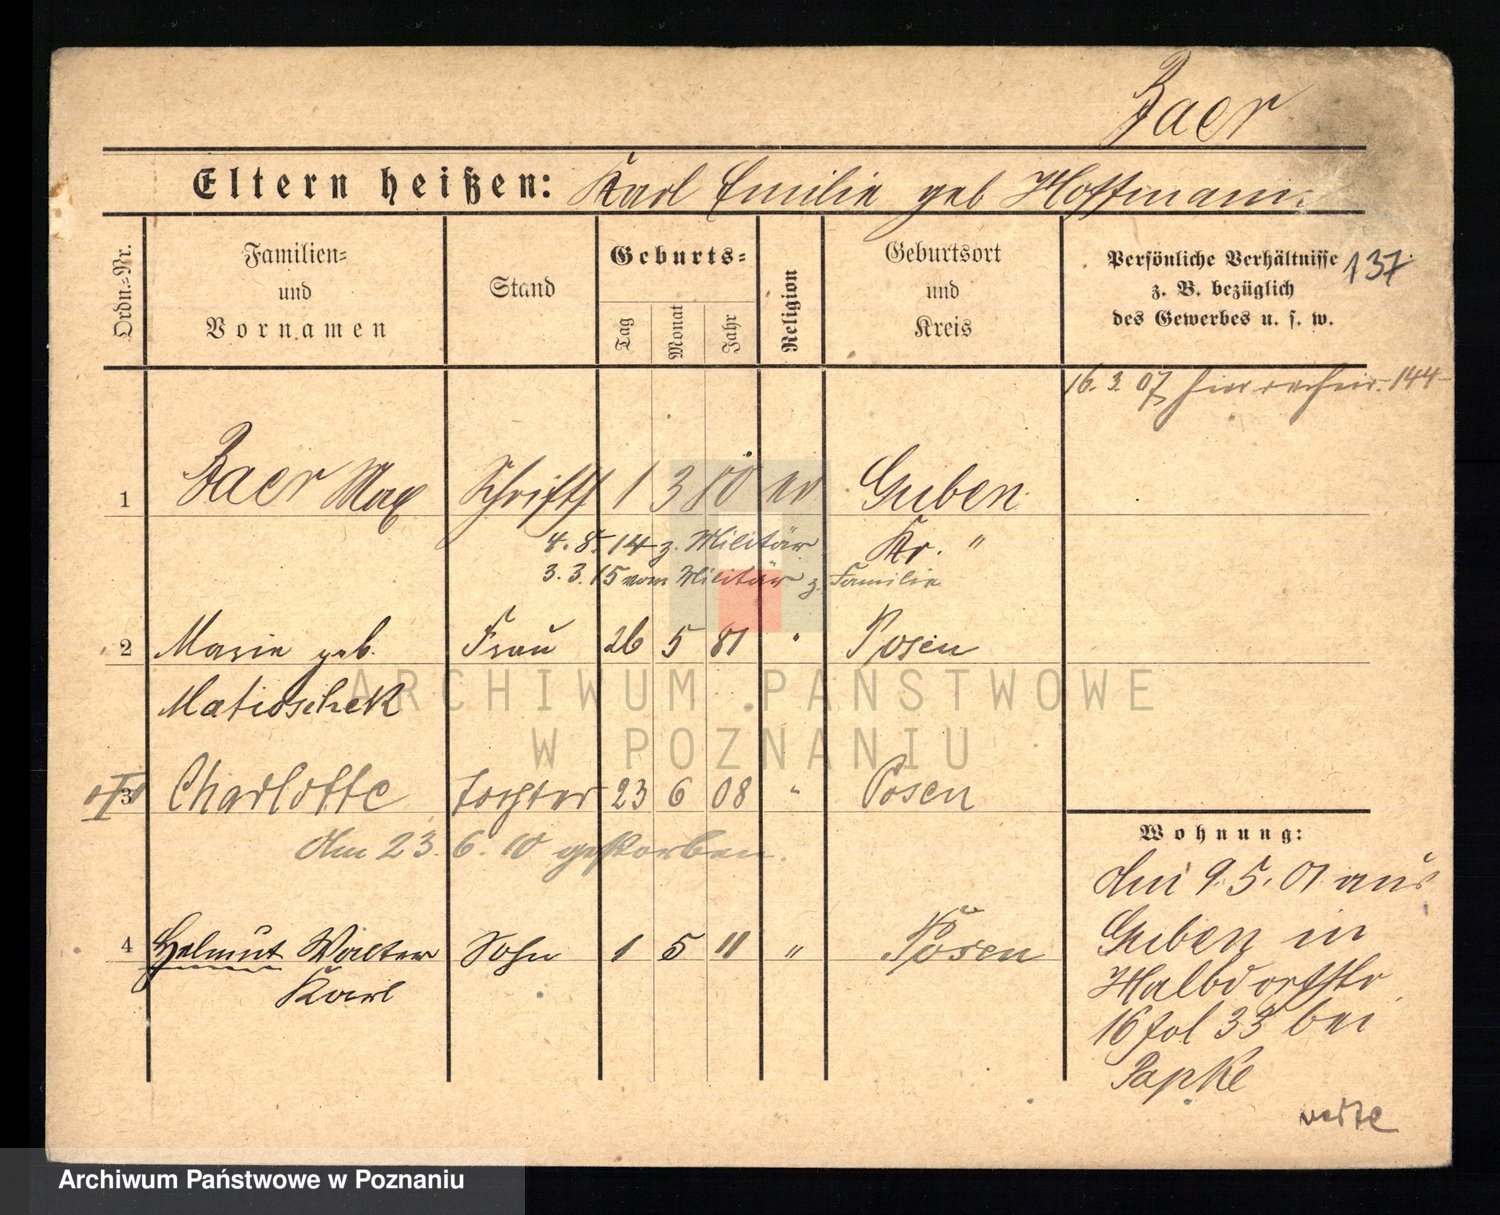 Baer
Eltern heißen: Karl Emilie geb Hoffmann
Ordn.-Nr.
Familien-
und
Vornamen
Stand
Geburts-
Tag
Monat
Jahr
Religion
Geburtsort
und
Kreis
Persönliche Verhältnisse
z. B. bezüglich
des Gewerbes u. s. w.
137
16. 3. 07 144
1 Baer Max Schrifts 1 3 80 ev Guben
Kr. "
4. 8. 14 z. Militär
3. 3. 15 vom Militär z. Familie
2 Marie geb. Frau 26 5 81 " Posen
Matioschek
3 Charlotte Tochter 23 6 08 " Posen
Am 23. 6. 10 gestorben.
4 Helmut Walter Sohn 1 5 11 " Posen
Karl
Wohnung:
9. 5. 01 aus
Guben in
Halbdorfstr
16 33 bei
Papke
ARCHIWUM PAŃSTWOWE
W POZNANIU
Archiwum Państwowe w Poznaniu